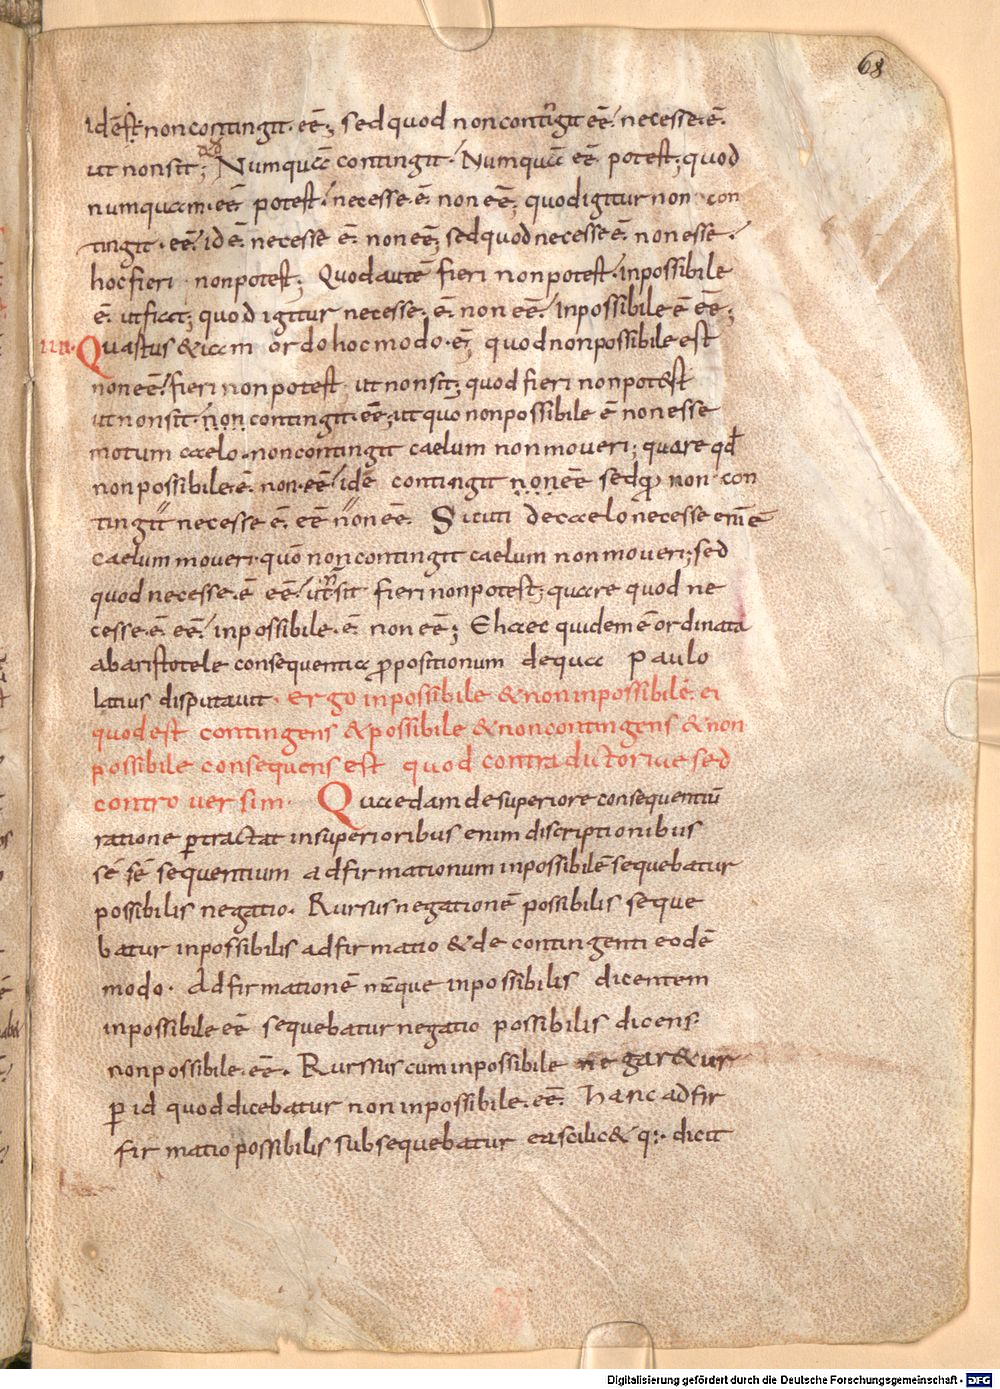 68
id ēst non contingit · eē; sed quod non contingit eē necesse · ē·
ut non sit; Numquā contingit · Numquā eē potest; quod
numquam · eē potest · necesse · ē · non eē; quod igitur non con
tingit · eē · id ē necesse ē · non eē; sed quod necesse ē · non esse ·
hoc fieri non potest; Quod autē fieri non potest · inpossibile
ē · ut fiat; quod igitur necesse · ē · non eē · inpossibile ē eē;
IIII · Quartus & iam ordo hoc modo · ē; quod non possibile est
non eē · fieri non potest ut non sit; quod fieri non pot&st
ut non sit · non contingit · eē; ut quō non possibile ē non esse
motum caelo · non contingit caelum non moveri; quare qđ
non possibile · ē · non · eē · id ē contingit non eē sed non con
tingit necesse ē · eē non eē · Sicuti de caelo necesse enī ē
caelum moveri · quō non contingit caelum non moveri; sed
quod necesse · ē eē · ut sit fieri non potest; quare quod ne
cesse · ē · eē · inpossibile · ē · non eē; E haec quidem ē ordinata
ab aristotele consequentia ppositionum de qua paulo
latius disputavit · Ergo inpossibile & non inpossibile · ei
quod est contingens & possibile & non contingens & non
possibile consequens est quod contradictoriae sed
controversim · Quaedam de superiore consequentiū
ratione ptractat in superioribus enim discriptionibus
sē sē sequentium adfirmationum inpossibilē sequebatur
possibilis negatio · Rursus negationē possibilis seque
batur inpossibilis adfirmatio & de contingenti eodē
modo · Adfirmationē nāque inpossibilis dicentem
inpossibile eē sequebatur negatio possibilis dicens ·
non possibile · eē · Rurssus cum inpossibile negar&ur
p id quod dicebatur non inpossibile · eē · hanc adfir
firmatio possibilis subsequebatur ea scilic& q: · dicit
Digitalisierung gefördert durch die Deutsche Forschungsgemeinschaft - DFG